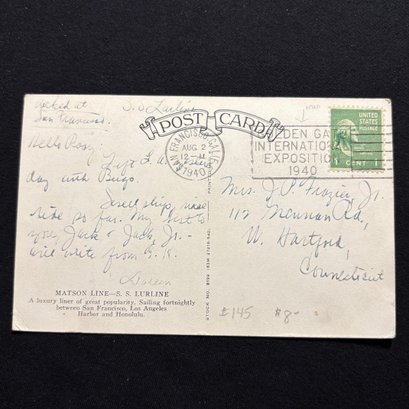 Docked at
San Francisco.
S.S Lurline
POST CARD
SAN FRANCISCO, CALIF.
AUG 2
12 M
1940
DEN GA
INTERNATIONA
EXPOSITION
1940
UNITED
STATES
POSTAGE
1 CENT 1
Hello Rosy
Left L.A.
day with Bings.
Swell ship, nice
ride so far. My best to
you Jack & Jack, Jr.-
will write from S.F.
Doreen
Mrs. J. P. Frazier Jr.
112 Mennan Rd,
W. Hartford,
Connecticut
MATSON LINE—S. S. LURLINE
A luxury liner of great popularity. Sailing fortnightly
between San Francisco, Los Angeles
Harbor and Honolulu.
£145 $8-